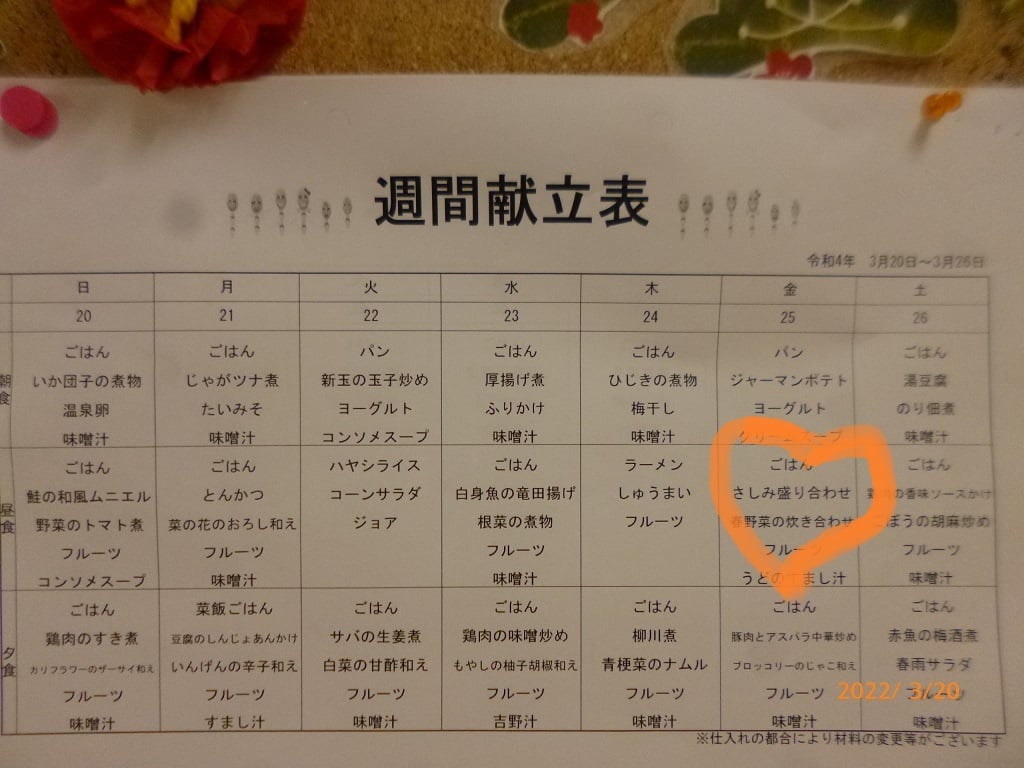 週間献立表
令和4年 3月20日～3月26日
日 月 火 水 木 金 土
20 21 22 23 24 25 26
朝食
ごはん ごはん パン ごはん ごはん パン ごはん
いか団子の煮物 じゃがツナ煮 新玉の玉子炒め 厚揚げ煮 ひじきの煮物 ジャーマンポテト 湯豆腐
温泉卵 たいみそ ヨーグルト ふりかけ 梅干し ヨーグルト のり佃煮
味噌汁 味噌汁 コンソメスープ 味噌汁 味噌汁 クリームスープ 味噌汁
昼食
ごはん ごはん ハヤシライス ごはん ラーメン ごはん ごはん
鮭の和風ムニエル とんかつ コーンサラダ 白身魚の竜田揚げ しゅうまい さしみ盛り合わせ の香味ソースかけ
野菜のトマト煮 菜の花のおろし和え ジョア 根菜の煮物 フルーツ 春野菜の炊き合わせ ごぼうの胡麻炒め
フルーツ フルーツ フルーツ フルーツ フルーツ
コンソメスープ 味噌汁 味噌汁 うどのすまし汁 味噌汁
夕食
ごはん 菜飯ごはん ごはん ごはん ごはん ごはん ごはん
鶏肉のすき煮 豆腐のしんじょあんかけ サバの生姜煮 鶏肉の味噌炒め 柳川煮 豚肉とアスパラ中華炒め 赤魚の梅酒煮
カリフラワーのザーサイ和え いんげんの辛子和え 白菜の甘酢和え もやしの柚子胡椒和え 青梗菜のナムル ブロッコリーのじゃこ和え 春雨サラダ
フルーツ フルーツ フルーツ フルーツ フルーツ フルーツ フルーツ
味噌汁 すまし汁 味噌汁 吉野汁 味噌汁 味噌汁 味噌汁
※仕入れの都合により材料の変更等がございます
2022/ 3/20